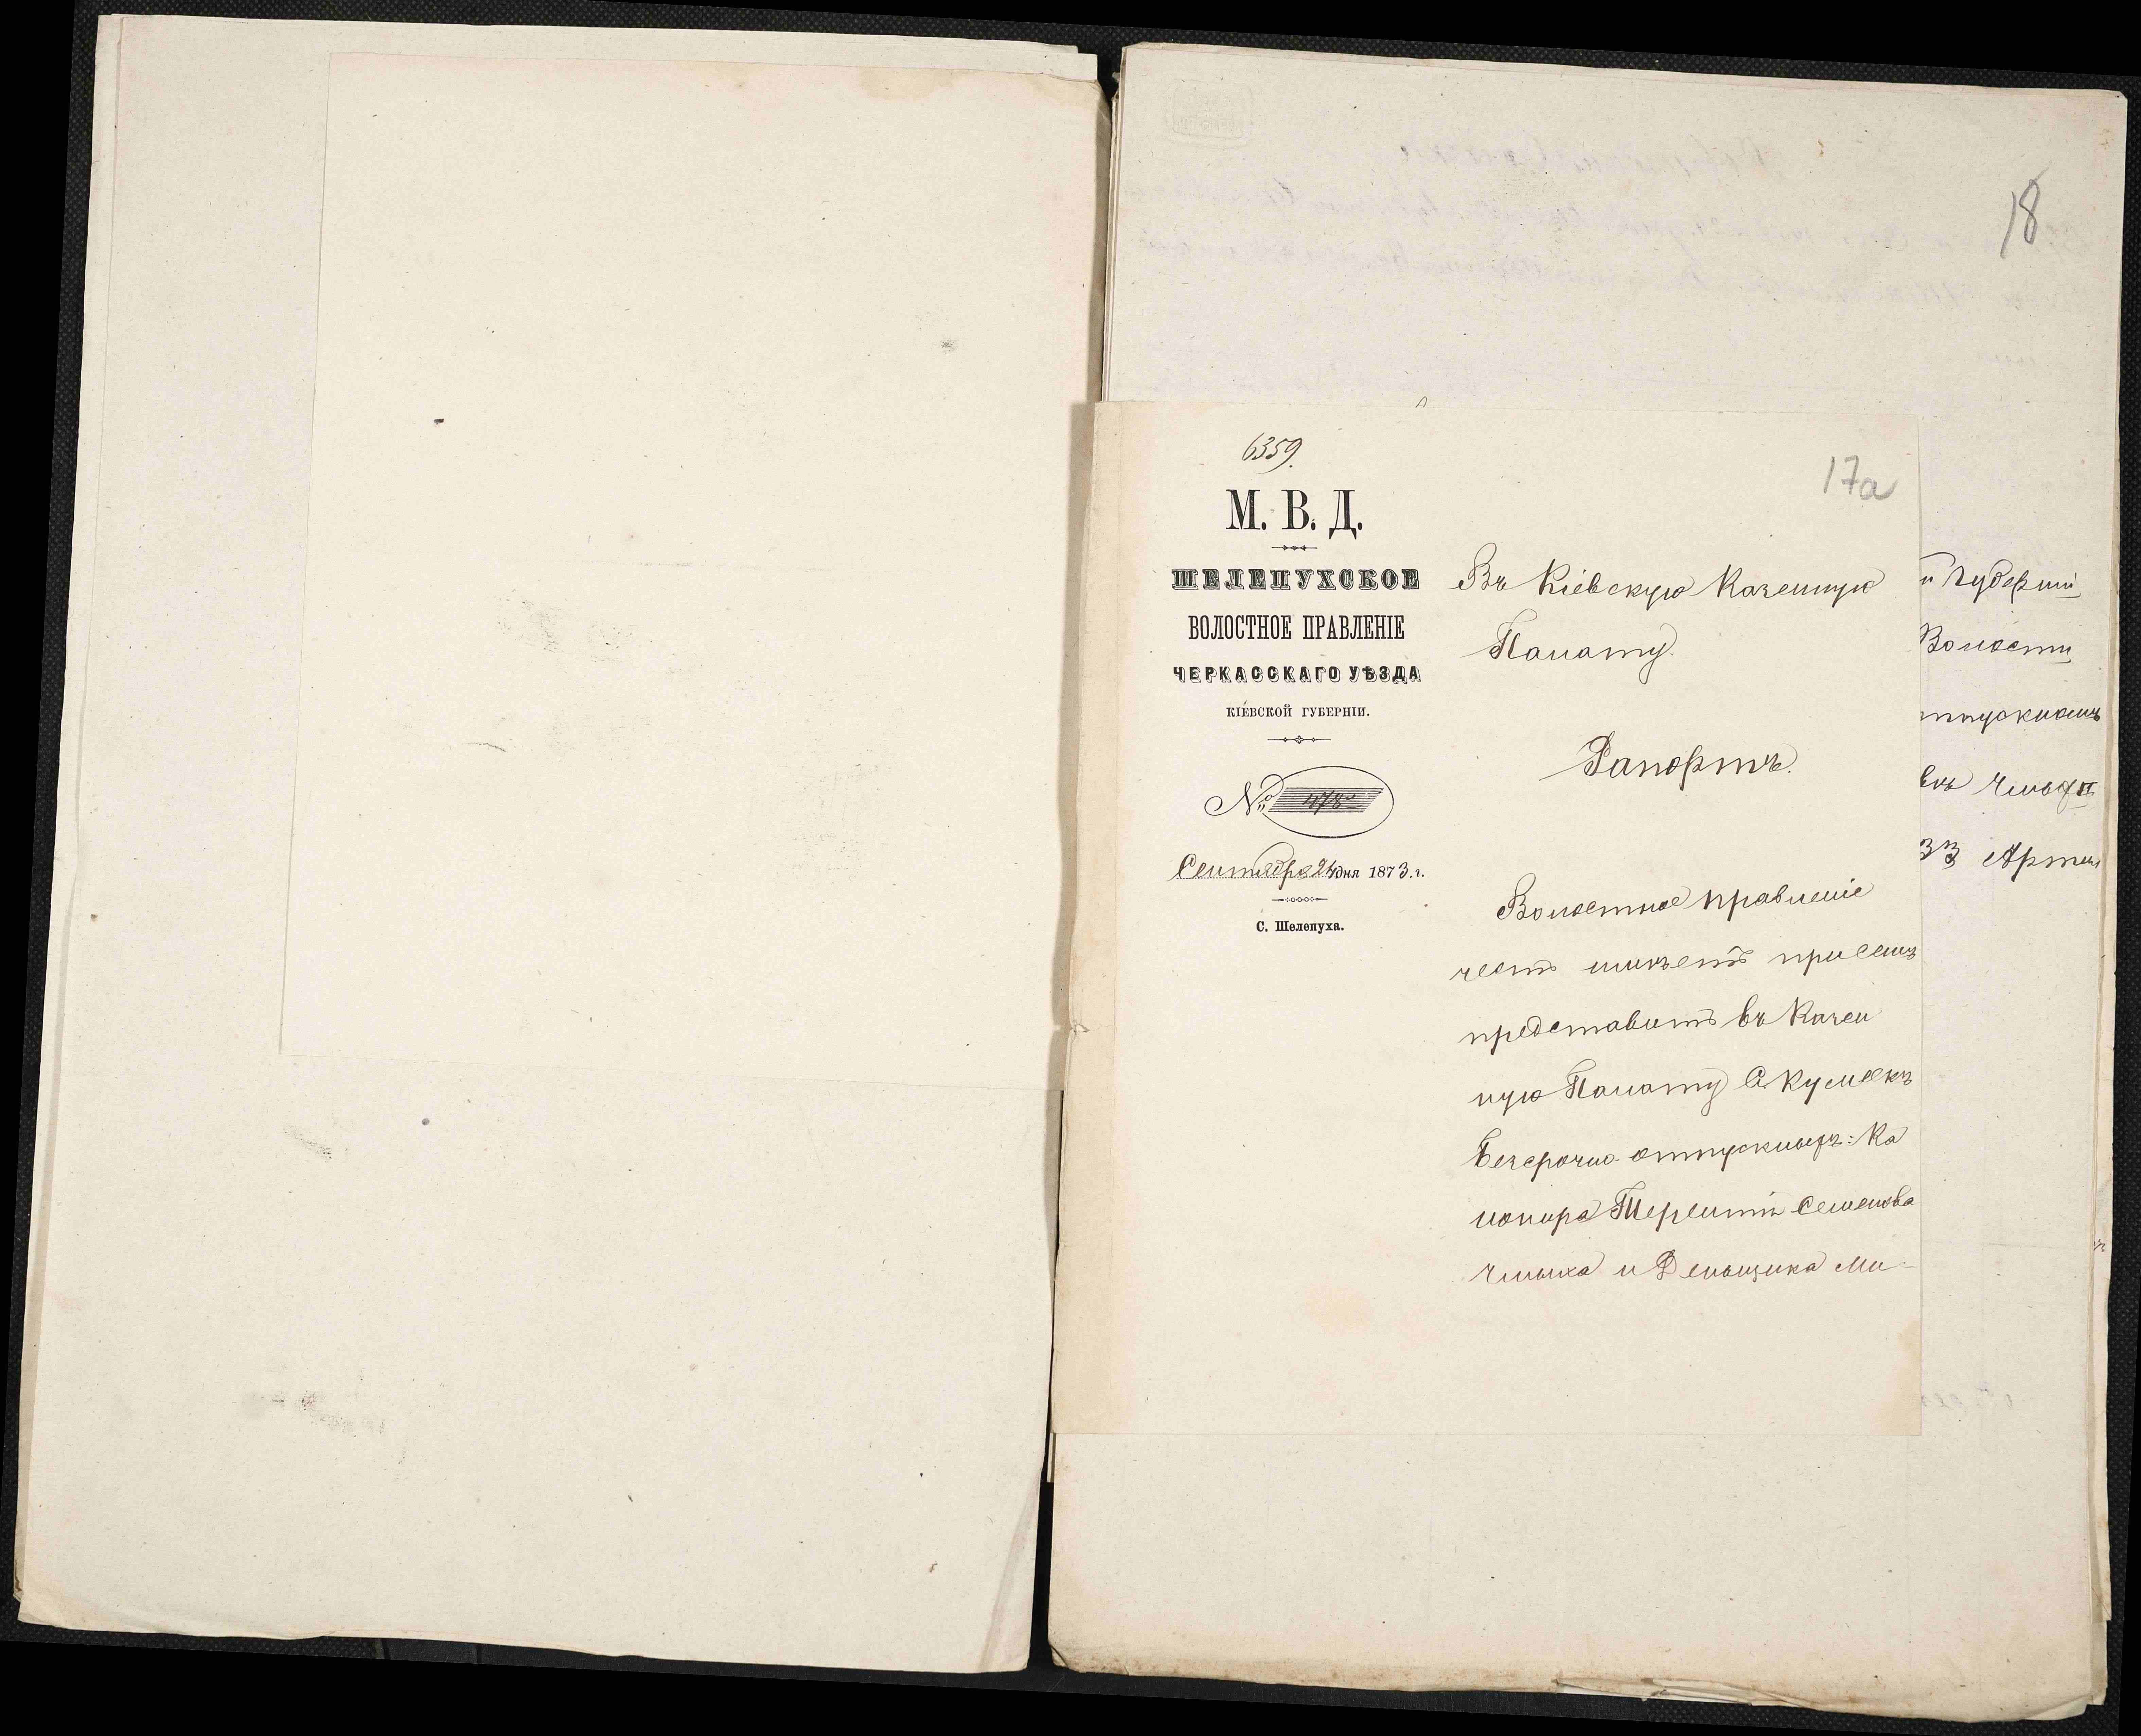 18
6359.
17а
М. В. Д.
ШЕЛЕПУХСКОЕ
ВОЛОСТНОЕ ПРАВЛЕНІЕ
ЧЕРКАССКАГО УѢЗДА
КІЕВСКОЙ ГУБЕРНІИ.
№ 478
Сентября 24 дня 1873 г.
С. Шелепуха.
Въ Кіевскую Казенную
Палату.
Рапортъ.
Волостное правленіе
честь имѣетъ при семъ
представить въ Казен
ную Палату
Безсрочно отпускныхъ: Ка
нонира Терентія Семенова
Чмыха и Деньщика Ми-
и Губерніи
Волости
Артил